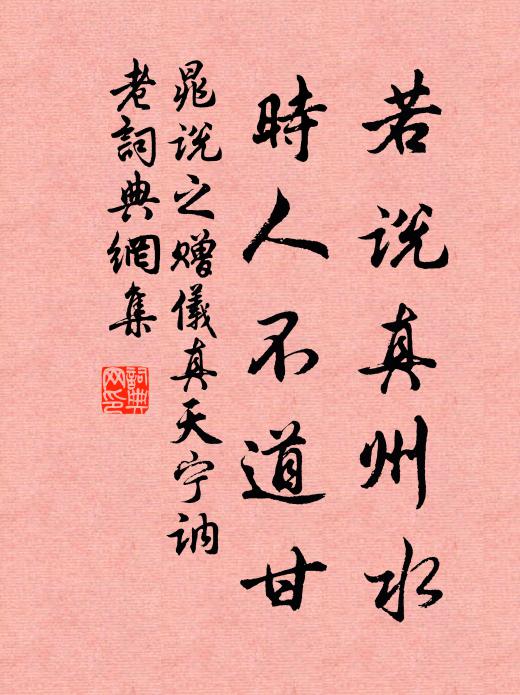 若说真州水
時人不道甘
晁说之赠儀真天宁讷
老詞典網集
詞典网印